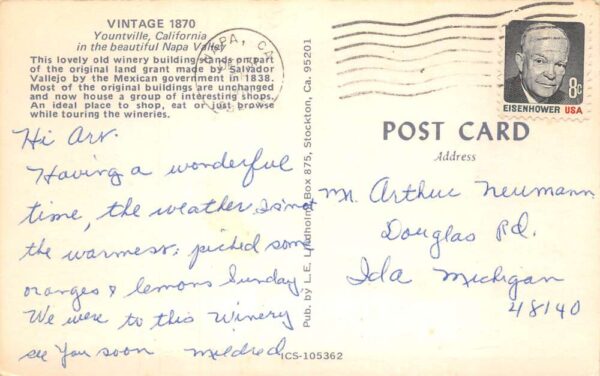 VINTAGE 1870
Yountville, California
in the beautiful Napa Valley
This lovely old winery building stands on part
of the original land grant made by Salvador
Vallejo by the Mexican government in 1838.
Most of the original buildings are unchanged
and now house a group of interesting shops.
An ideal place to shop, eat or just browse
while touring the wineries.
Hi Art.
Having a wonderful
time, the weather isn't
the warmest; picked some
oranges & lemons Sunday.
We were to this Winery
see you soon Mildred
Pub. by L.E. Lindholm, Box 875, Stockton, Ca. 95201
ICS-105362
NAPA, CA
EISENHOWER USA
8c
POST CARD
Address
Mr. Arthur Neumann
Douglas Rd.
Ida Michigan
48140